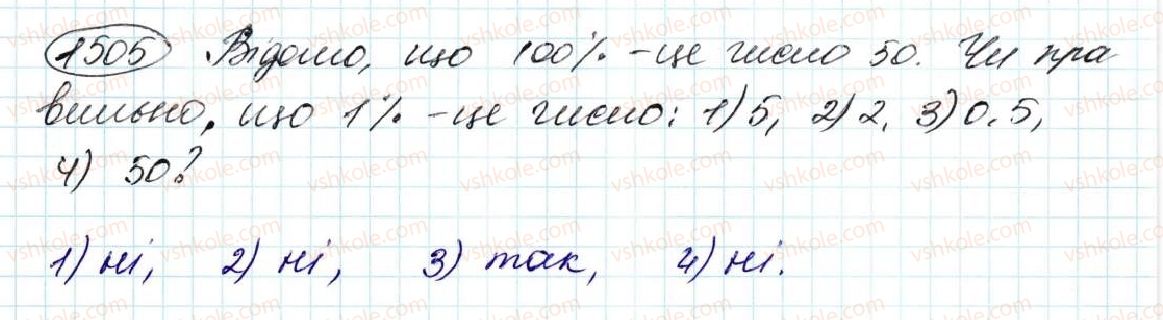 1505 Відомо, що 100% - це число 50. Чи пра
вильно, що 1% - це число: 1) 5, 2) 2, 3) 0,5,
4) 50?
1) ні, 2) ні, 3) так, 4) ні.